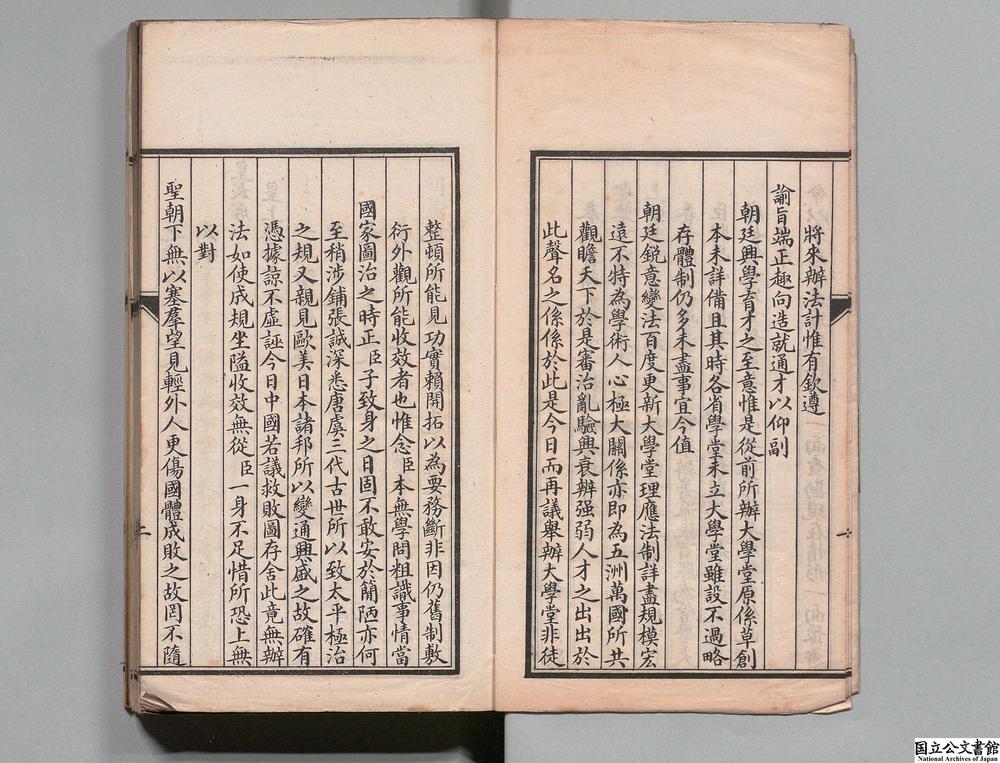 將來辦法計惟有欽遵
諭旨端正趣向造就通才以仰副
朝廷興學育才之至意惟是從前所辦大學堂原係草創
本未詳備且其時各省學堂未立大學堂雖設不過略
存體制仍多未盡事宜今值
朝廷銳意變法百度更新大學堂理應法制詳盡規模宏
遠不特為學術人心極大關係亦即為五洲萬國所共
觀瞻天下於是審治亂驗興衰辨强弱人才之出出於
此聲名之係係於此是今日而再議舉辦大學堂非徒
整頓所能見功實賴開拓以為要務斷非因仍舊制敷
衍外觀所能收效者也惟念臣本無學問粗識事情當
國家圖治之時正臣子致身之日固不敢安於簡陋亦何
至稍涉鋪張誠深悉唐虞三代古世所以致太平極治
之規又親見歐美日本諸邦所以變通興盛之故確有
憑據諒不虛誣今日中國若議救敗圖存舍此竟無辦
法如使成規坐隘收效無從臣一身不足惜所恐上無
以對
聖朝下無以塞羣望見輕外人更傷國體成敗之故罔不隨
二
国立公文書館
National Archives of Japan